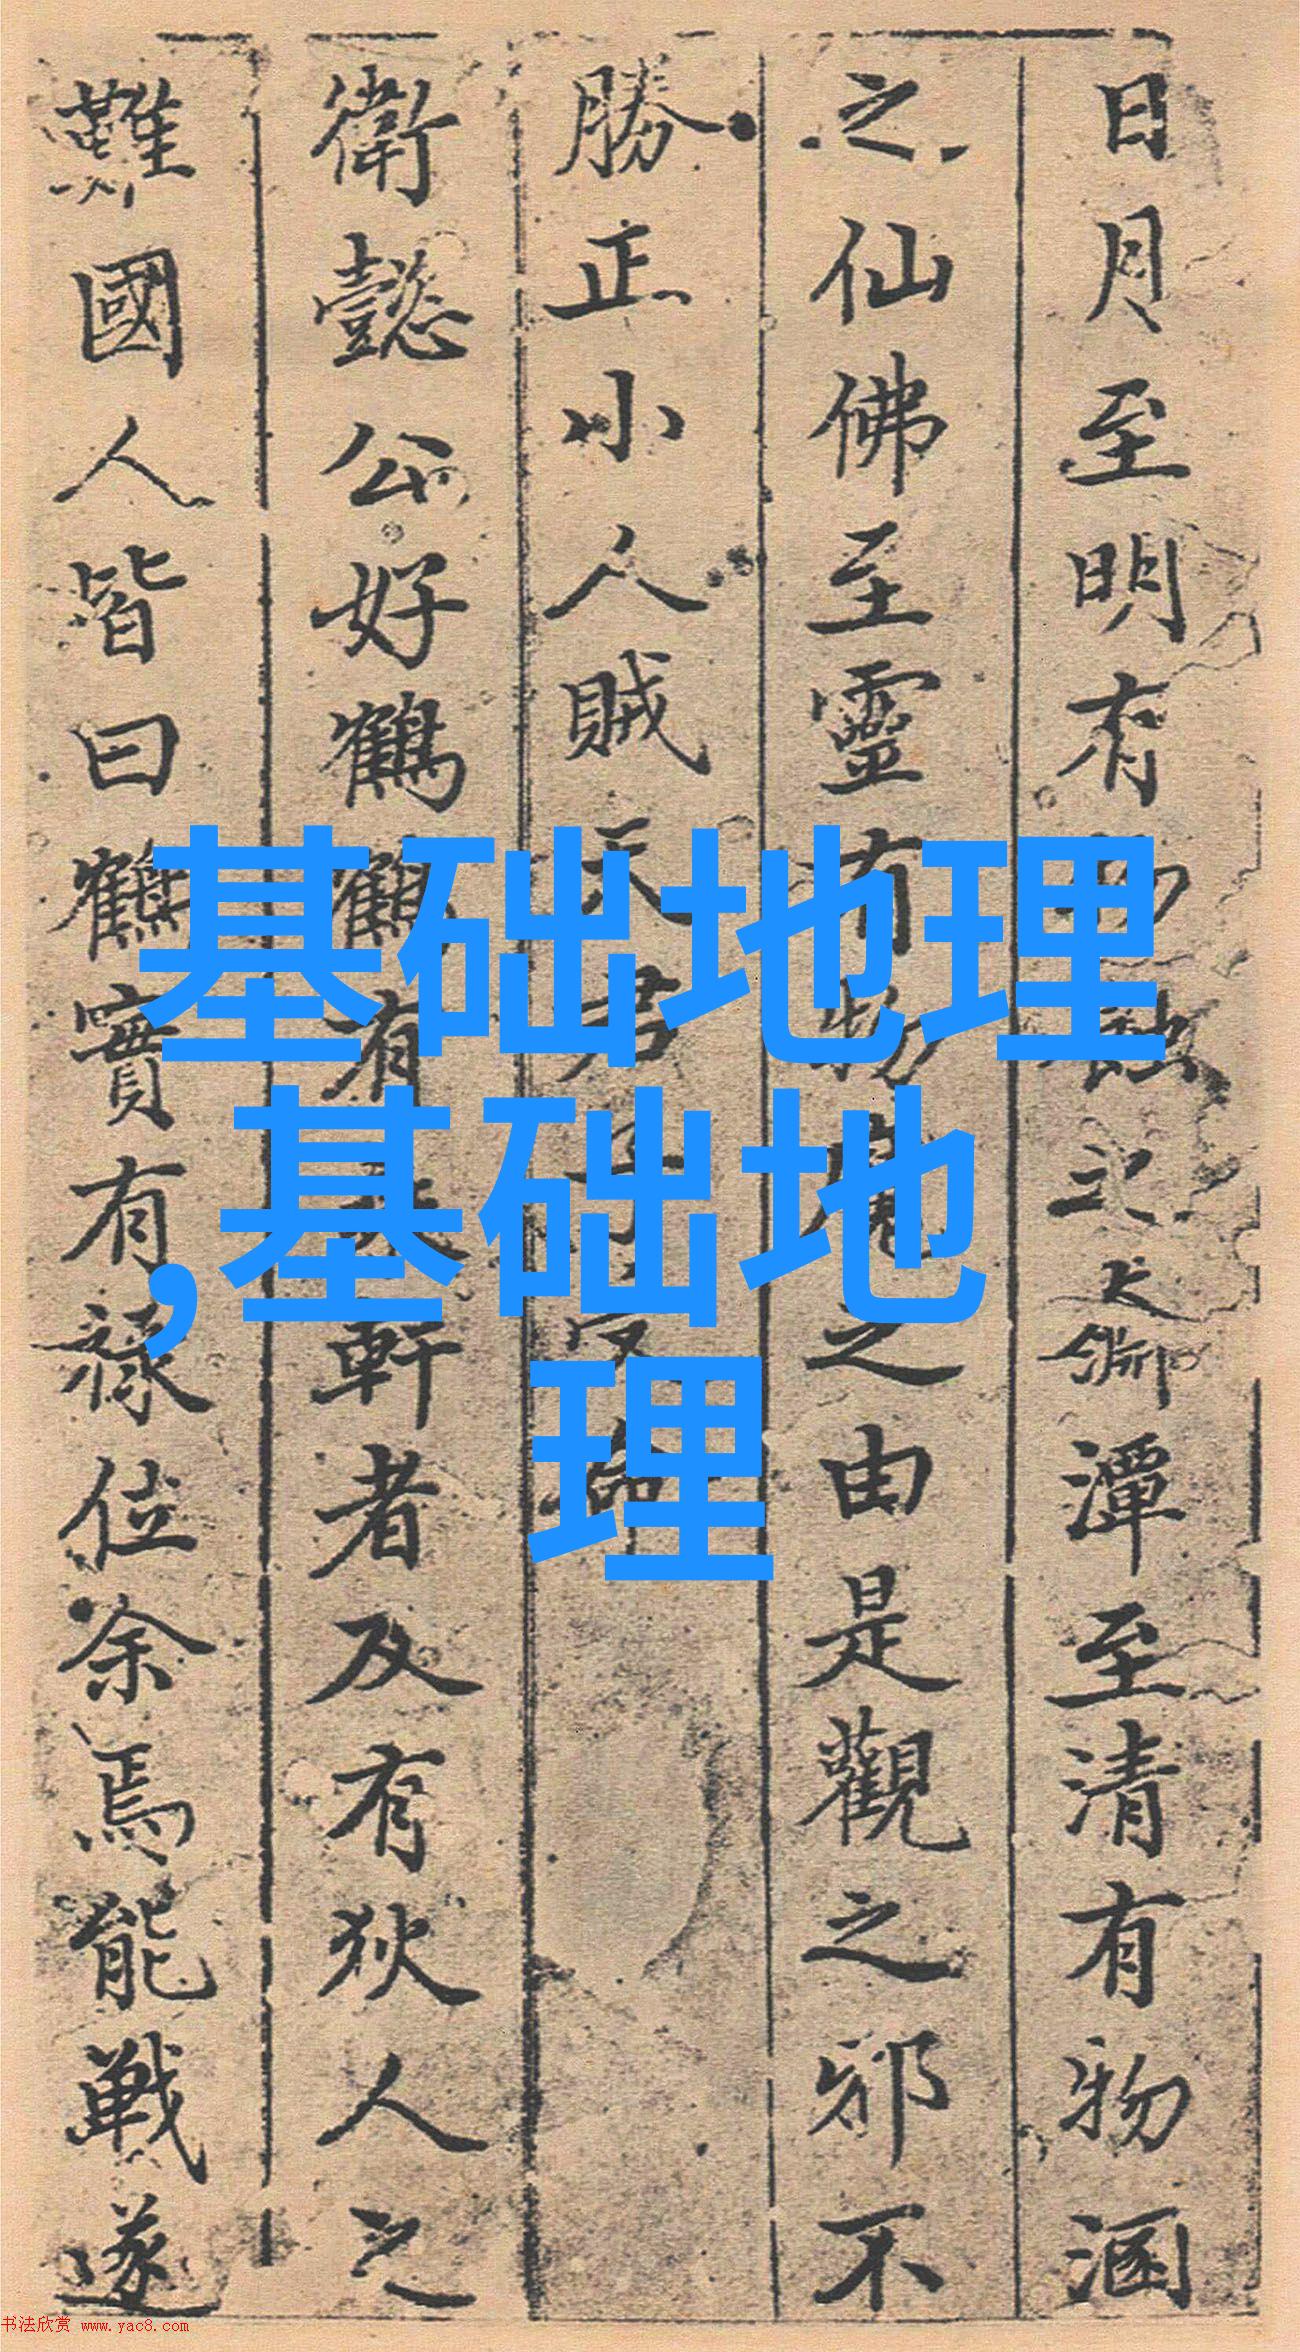 日月至明有物蝕之大淵潭至清有物涵
之仙佛至靈有物魔之由是觀之邪不
勝正小人賊天君子安命
衛懿公好鶴鶴有乘軒者及有狄人之
難國人皆曰鶴實有祿位余焉能戰遂
基础地理
,基础地
理
书法欣赏 www.yac8.com